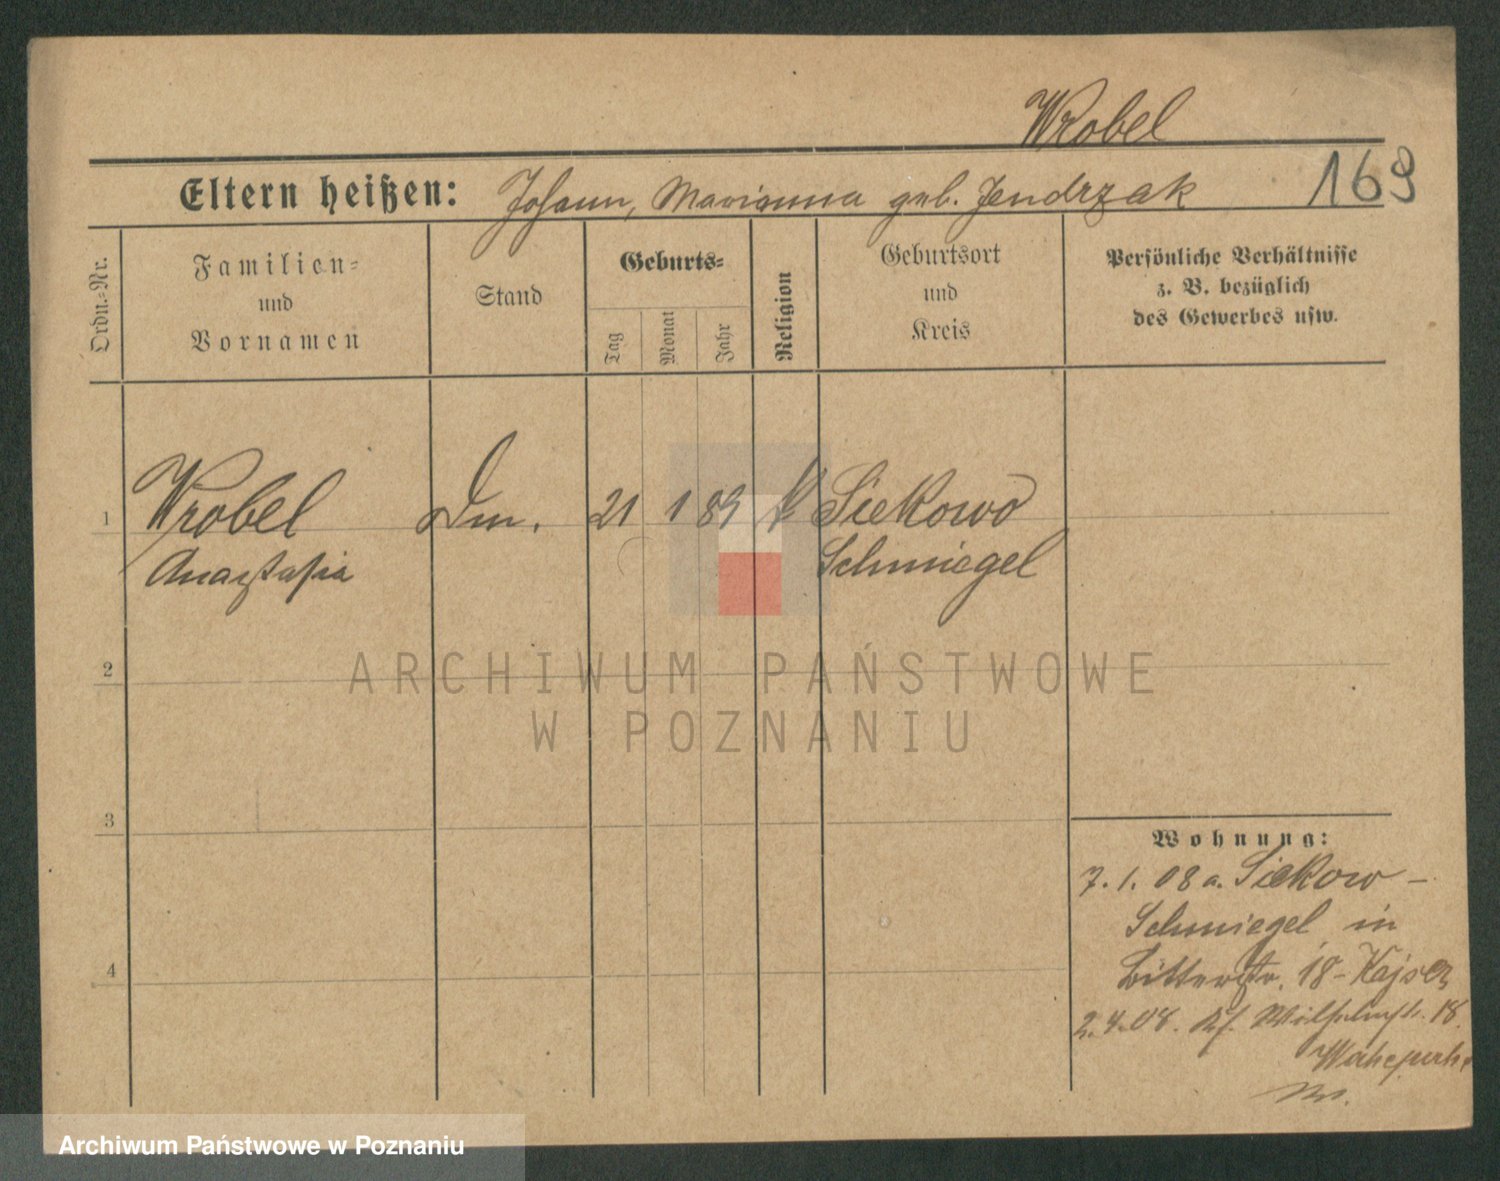 Wrobel
Eltern heißen: Johann, Marianna geb. Jendrzak
169
Ordn.-Nr.
Familien-
und
Vornamen
Stand
Geburts-
Tag
Monat
Jahr
Religion
Geburtsort
und
Kreis
Persönliche Verhältnisse
z. B. bezüglich
des Gewerbes usw.
1 Wrobel Dm. 21 1 89 k Siekowo
Anastasia Schmiegel
2
3
4
Wohnung:
7.1.08 a. Siekowo -
Schmiegel in
Ritterstr. 18-
2.4.08. Wilhelmstr. 18.
ARCHIWUM PAŃSTWOWE
W POZNANIU
Archiwum Państwowe w Poznaniu